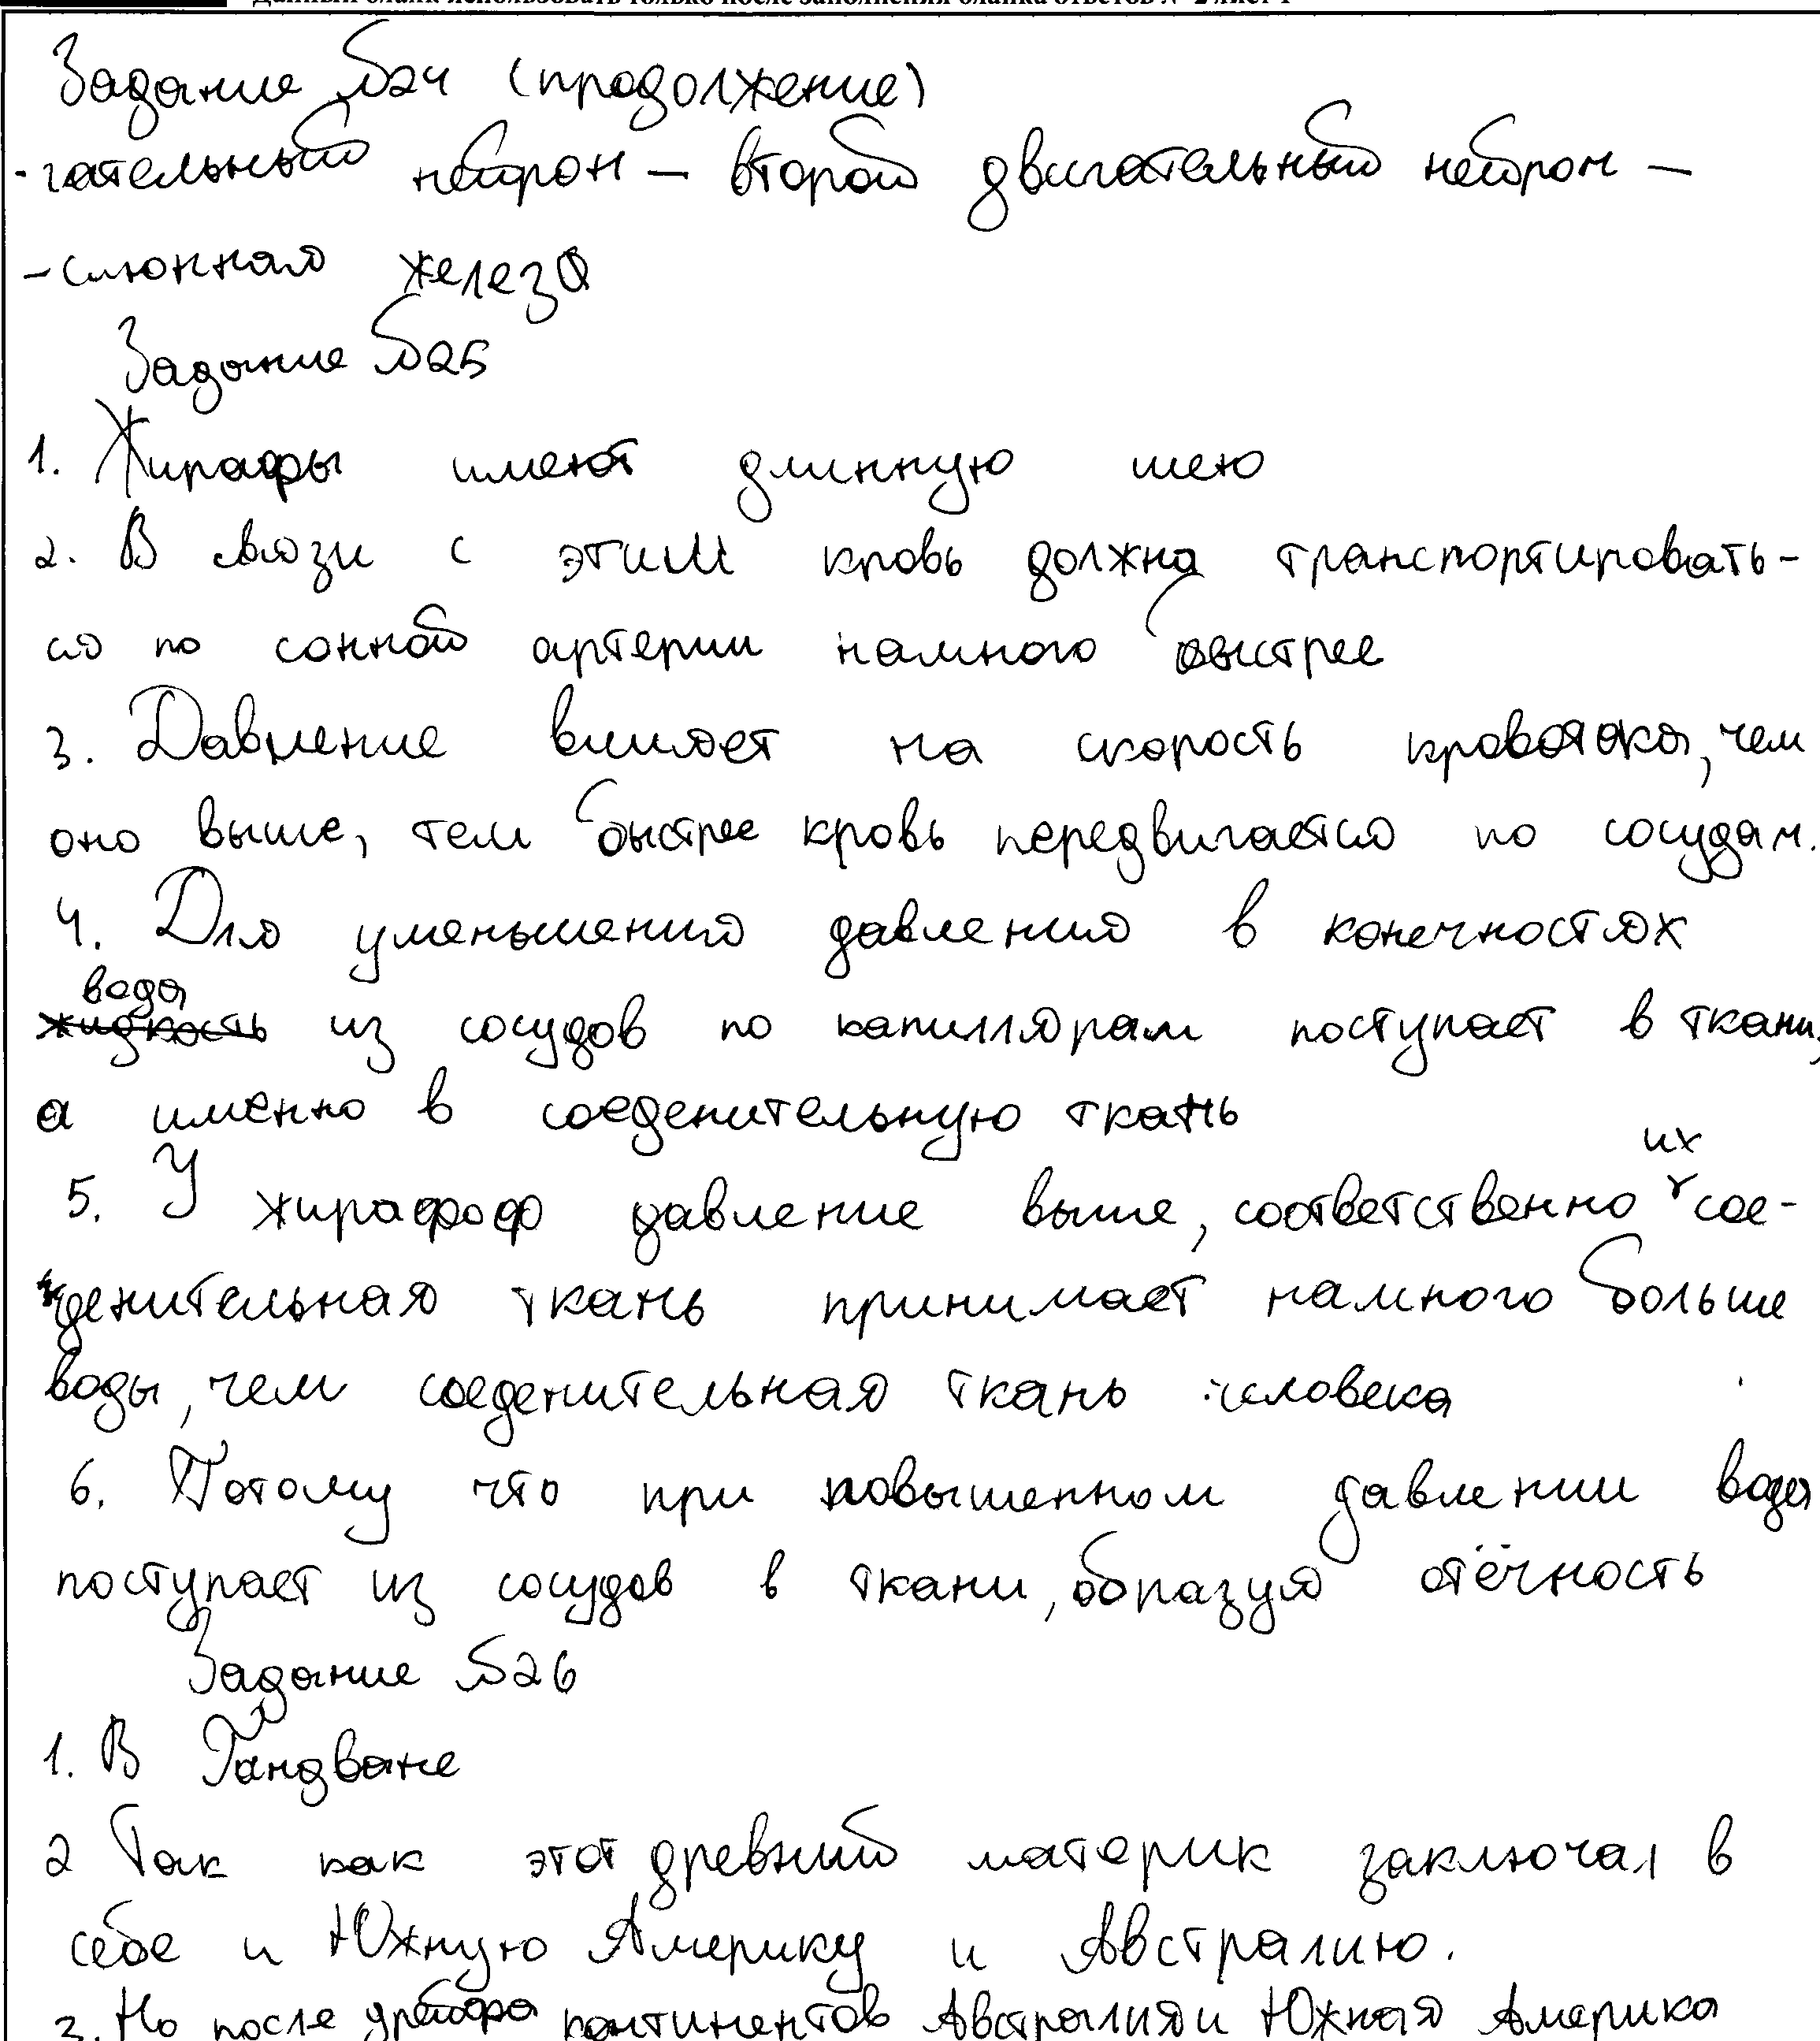 Данный бланк использовать только после заполнения бланка ответов № 2 лист 1
Задание №24 (продолжение)
-гательный нейрон – второй двигательный нейрон –
– слюнная железа
Задание №25
1. Жирафы имеют длинную шею
2. В связи с этим кровь должна транспортировать-
ся по сонной артерии намного быстрее
3. Давление влияет на скорость кровотока, чем
оно выше, тем быстрее кровь передвигается по сосудам.
4. Для уменьшения давления в конечностях
вода
жидкость из сосудов по капиллярам поступает в ткани,
а именно в соеденительную ткань
их
5. У жирафоф давление выше, соответственно сое-
денительная ткань принимает намного больше
воды, чем соеденительная ткань человека
6. Потому что при повышенном давлении вода
поступает из сосудов в ткани, образуя отёчность
Задание №26
1. В Гандване
2 Так как этот древний материк заключал в
себе и Южную Америку и Австралию.
3. Но после дрейфа континентов Австралия и Южная Америка